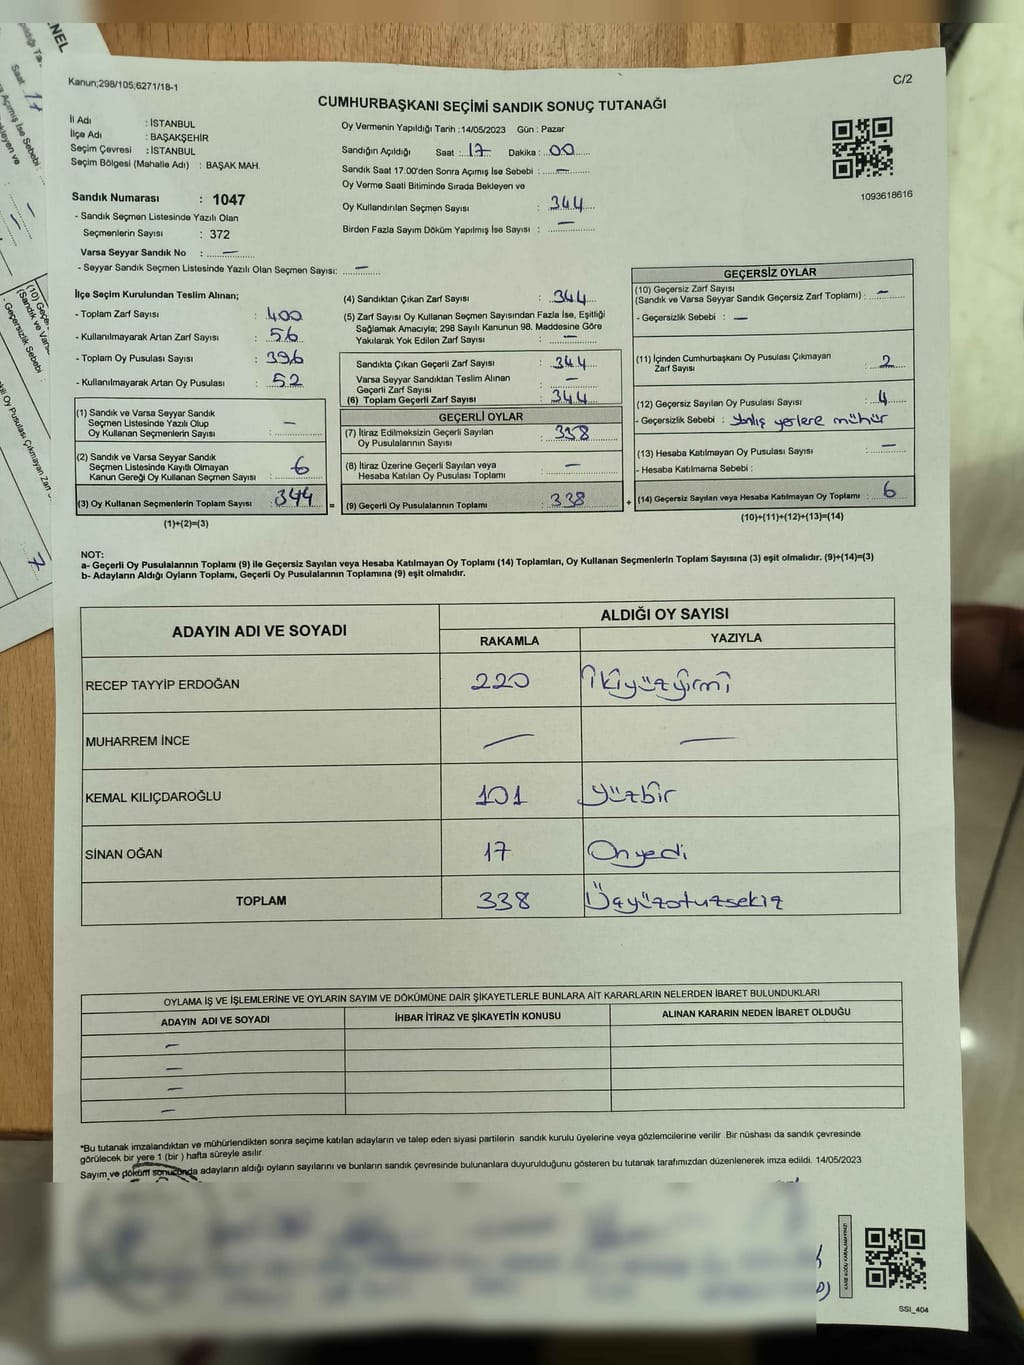 Kanun;298/105;6271/18-1
C/2
CUMHURBAŞKANI SEÇİMİ SANDIK SONUÇ TUTANAĞI
İl Adı : İSTANBUL
İlçe Adı : BAŞAKŞEHİR
Seçim Çevresi : İSTANBUL
Seçim Bölgesi (Mahalle Adı) : BAŞAK MAH.
Sandık Numarası : 1047
- Sandık Seçmen Listesinde Yazılı Olan
Seçmenlerin Sayısı : 372
Varsa Seyyar Sandık No : —
- Seyyar Sandık Seçmen Listesinde Yazılı Olan Seçmen Sayısı: —
Oy Vermenin Yapıldığı Tarih : 14/05/2023 Gün : Pazar
Sandığın Açıldığı Saat : 17 Dakika : 00
Sandık Saat 17.00'den Sonra Açımış İse Sebebi : —
Oy Verme Saati Bitiminde Sırada Bekleyen ve
Oy Kullandırılan Seçmen Sayısı : 344
Birden Fazla Sayım Döküm Yapılmış İse Sayısı : —
1093618616
İlçe Seçim Kurulundan Teslim Alınan;
- Toplam Zarf Sayısı : 400
- Kullanılmayarak Artan Zarf Sayısı : 56
- Toplam Oy Pusulası Sayısı : 396
- Kullanılmayarak Artan Oy Pusulası : 52
(1) Sandık ve Varsa Seyyar Sandık
Seçmen Listesinde Yazılı Olup
Oy Kullanan Seçmenlerin Sayısı : —
(2) Sandık ve Varsa Seyyar Sandık
Seçmen Listesinde Kayıtlı Olmayan
Kanun Gereği Oy Kullanan Seçmen Sayısı : 6
(3) Oy Kullanan Seçmenlerin Toplam Sayısı : 344
(1)+(2)=(3)
(4) Sandıktan Çıkan Zarf Sayısı : 344
(5) Zarf Sayısı Oy Kullanan Seçmen Sayısından Fazla İse, Eşitliği
Sağlamak Amacıyla; 298 Sayılı Kanunun 98. Maddesine Göre
Yakılarak Yok Edilen Zarf Sayısı : —
Sandıkta Çıkan Geçerli Zarf Sayısı : 344
Varsa Seyyar Sandıktan Teslim Alınan
Geçerli Zarf Sayısı : —
(6) Toplam Geçerli Zarf Sayısı : 344
GEÇERLİ OYLAR
(7) İtiraz Edilmeksizin Geçerli Sayılan
Oy Pusulalarının Sayısı : 338
(8) İtiraz Üzerine Geçerli Sayılan veya
Hesaba Katılan Oy Pusulası Toplamı : —
= (9) Geçerli Oy Pusulalarının Toplamı : 338 +
GEÇERSİZ OYLAR
(10) Geçersiz Zarf Sayısı
(Sandık ve Varsa Seyyar Sandık Geçersiz Zarf Toplamı) : —
- Geçersizlik Sebebi : —
(11) İçinden Cumhurbaşkanı Oy Pusulası Çıkmayan
Zarf Sayısı : 2
(12) Geçersiz Sayılan Oy Pusulası Sayısı : 4
- Geçersizlik Sebebi : Yanlış yerlere mühür
(13) Hesaba Katılmayan Oy Pusulası Sayısı : —
- Hesaba Katılmama Sebebi :
(14) Geçersiz Sayılan veya Hesaba Katılmayan Oy Toplamı : 6
(10)+(11)+(12)+(13)=(14)
NOT:
a- Geçerli Oy Pusulalarının Toplamı (9) ile Geçersiz Sayılan veya Hesaba Katılmayan Oy Toplamı (14) Toplamları, Oy Kullanan Seçmenlerin Toplam Sayısına (3) eşit olmalıdır. (9)+(14)=(3)
b- Adayların Aldığı Oyların Toplamı, Geçerli Oy Pusulalarının Toplamına (9) eşit olmalıdır.
ADAYIN ADI VE SOYADI ALDIĞI OY SAYISI
RAKAMLA YAZIYLA
RECEP TAYYİP ERDOĞAN 220 İkiyüzyirmi
MUHARREM İNCE — —
KEMAL KILIÇDAROĞLU 101 yüzbir
SİNAN OĞAN 17 Onyedi
TOPLAM 338 Üçyüzotuzsekiz
OYLAMA İŞ VE İŞLEMLERİNE VE OYLARIN SAYIM VE DÖKÜMÜNE DAİR ŞİKAYETLERLE BUNLARA AİT KARARLARIN NELERDEN İBARET BULUNDUKLARI
ADAYIN ADI VE SOYADI İHBAR İTİRAZ VE ŞİKAYETİN KONUSU ALINAN KARARIN NEDEN İBARET OLDUĞU
—
—
—
—
*Bu tutanak imzalandıktan ve mühürlendikten sonra seçime katılan adayların ve talep eden siyasi partilerin sandık kurulu üyelerine veya gözlemcilerine verilir. Bir nüshası da sandık çevresinde
görülecek bir yere 1 (bir ) hafta süreyle asılır.
Sayım ve döküm sonucunda adayların aldığı oyların sayılarını ve bunların sandık çevresinde bulunanlara duyurulduğunu gösteren bu tutanak tarafımızdan düzenlenerek imza edildi. 14/05/2023
SSI_404